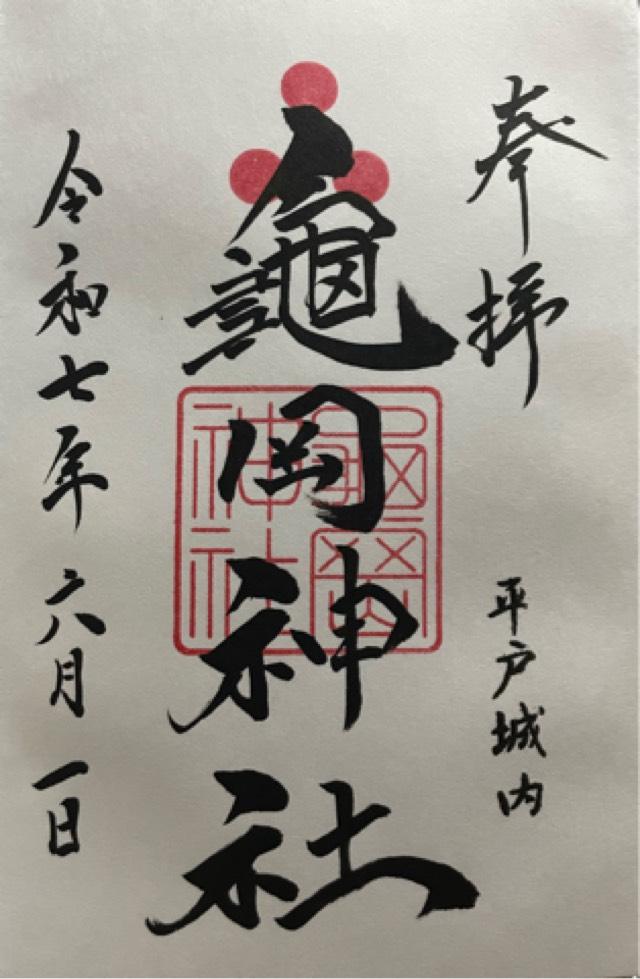 奉拝
平戸城内
龜岡神社
龜岡神社
令和七年六月一日